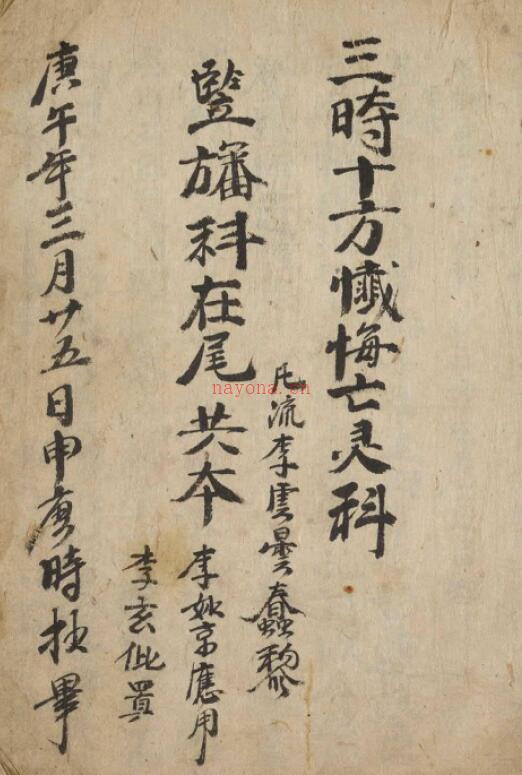 三時十方懺悔亡灵科
凡流李雲曇蠢黎
豎旛科在尾共本
李妙京應用
李玄 置
庚午年三月廿五日申 時抄畢
nayona.cn